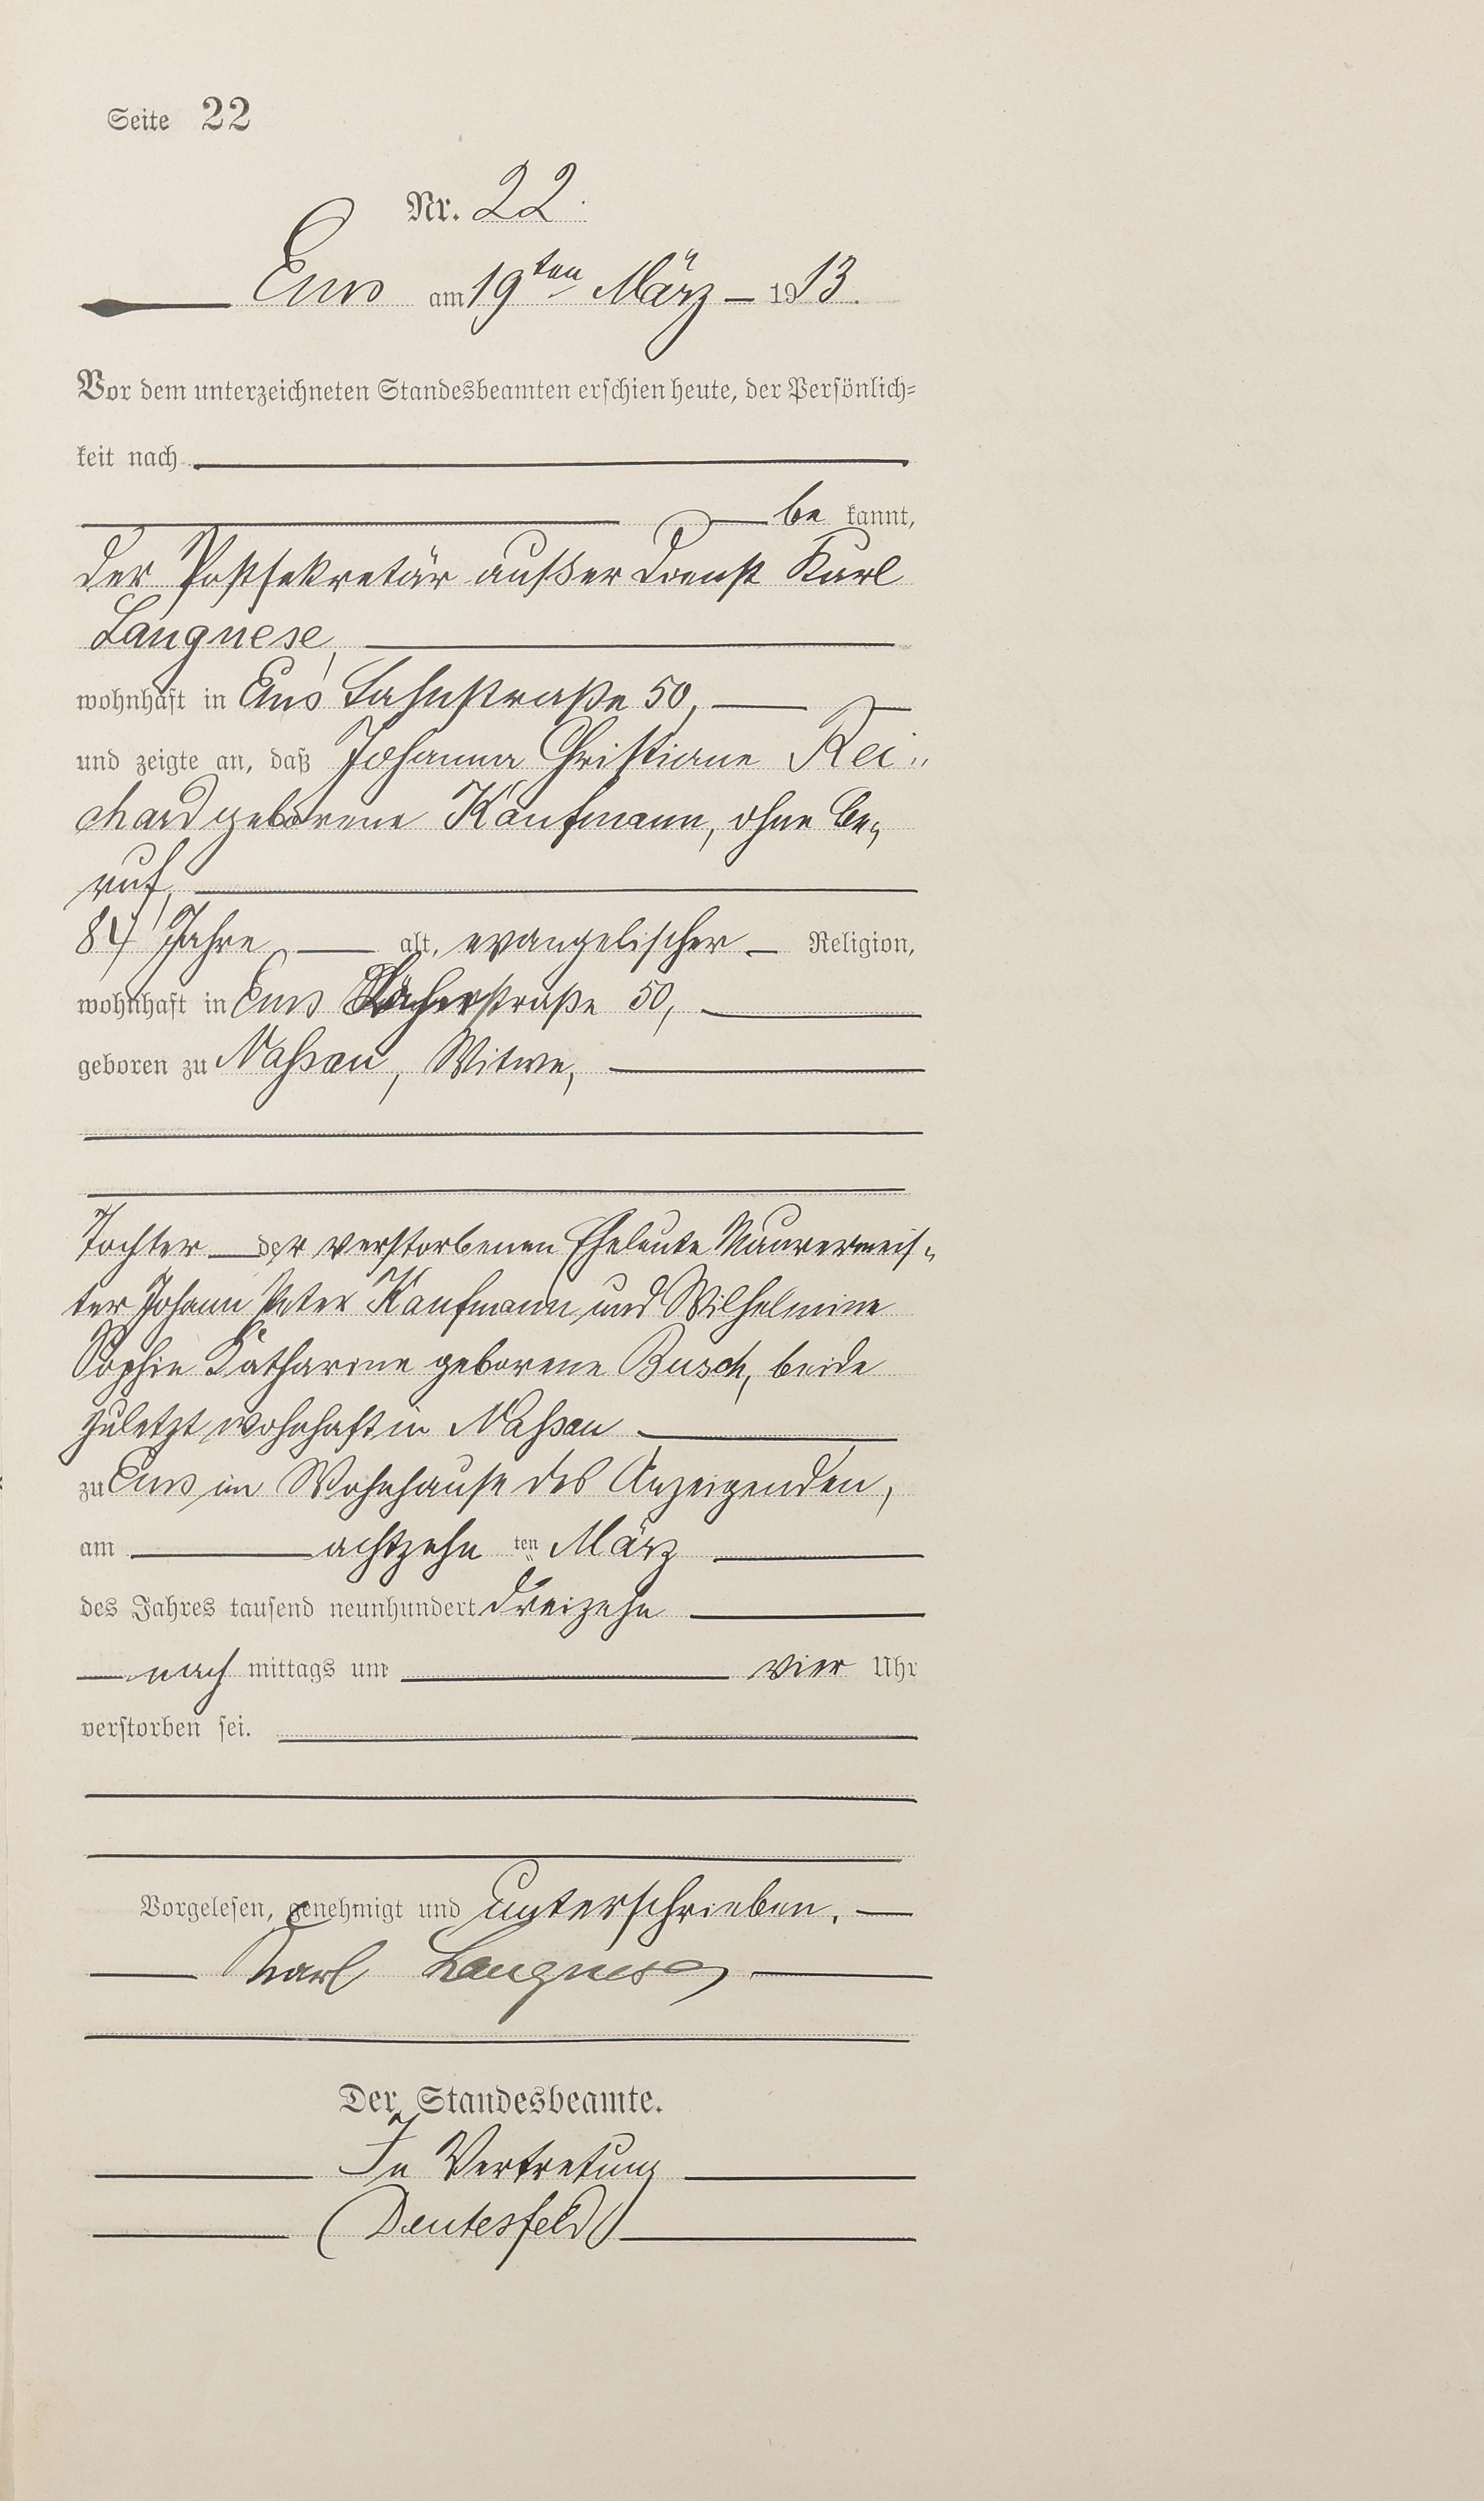 Seite 22
Nr. 22.
Ems am 19ten März 1913.
Vor dem unterzeichneten Standesbeamten erschien heute, der Persönlich-
keit nach
be kannt,
der Postsekretär außer Dienst Karl
Langnese,
wohnhaft in Ems Lahnstraße 50,
und zeigte an, daß Johanna Christiane Rei-
chard geborene Kaufmann, ohne Be-
ruf,
84 Jahre alt, evangelischer Religion,
wohnhaft in Ems 50,
geboren zu Nassau, Witwe,
Tochter der verstorbenen Eheleute Maurermeis-
ter Johann Peter Kaufmann und Wilhelmine
Sophie Katharine geborene Busch, beide
zuletzt wohnhaft in Nassau
zu Ems im Wohnhause des Anzeigenden,
am achtzehn ten März
des Jahres tausend neunhundert dreizehn
nach mittags um vier Uhr
verstorben sei.
Vorgelesen, genehmigt und unterschrieben.
Karl Langnese
Der Standesbeamte.
In Vertretung
(Deutesfeld)